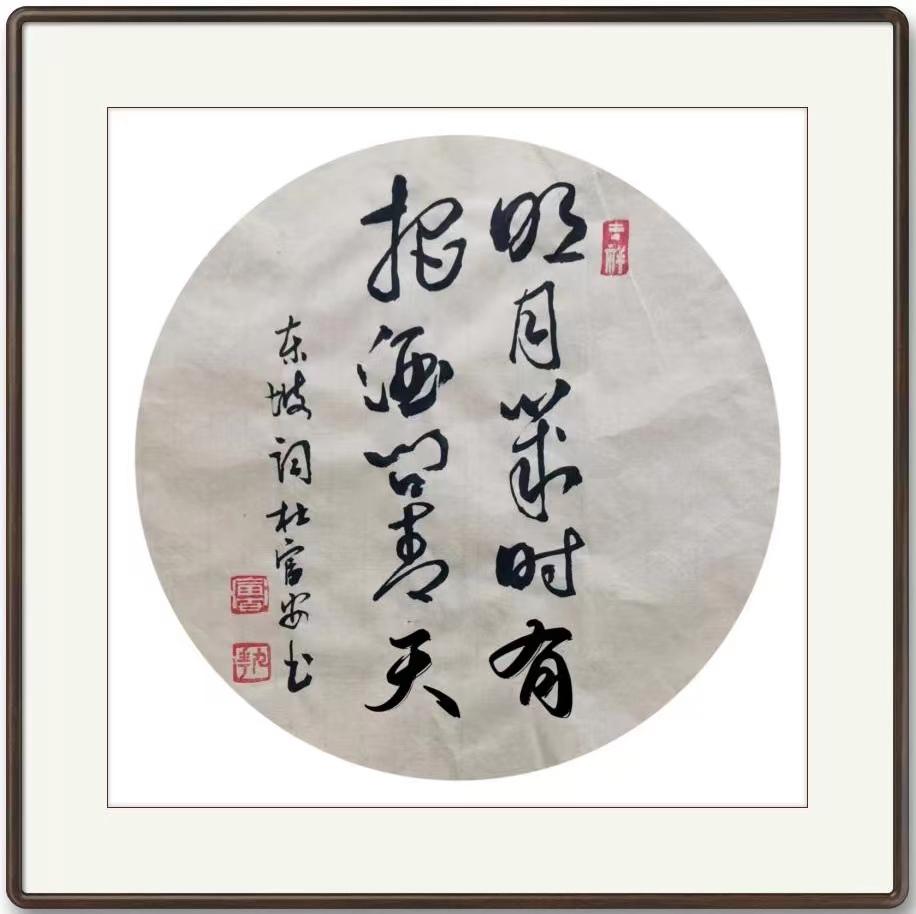 吉祥
明月幾时有
把酒问青天
东坡词杜富安书